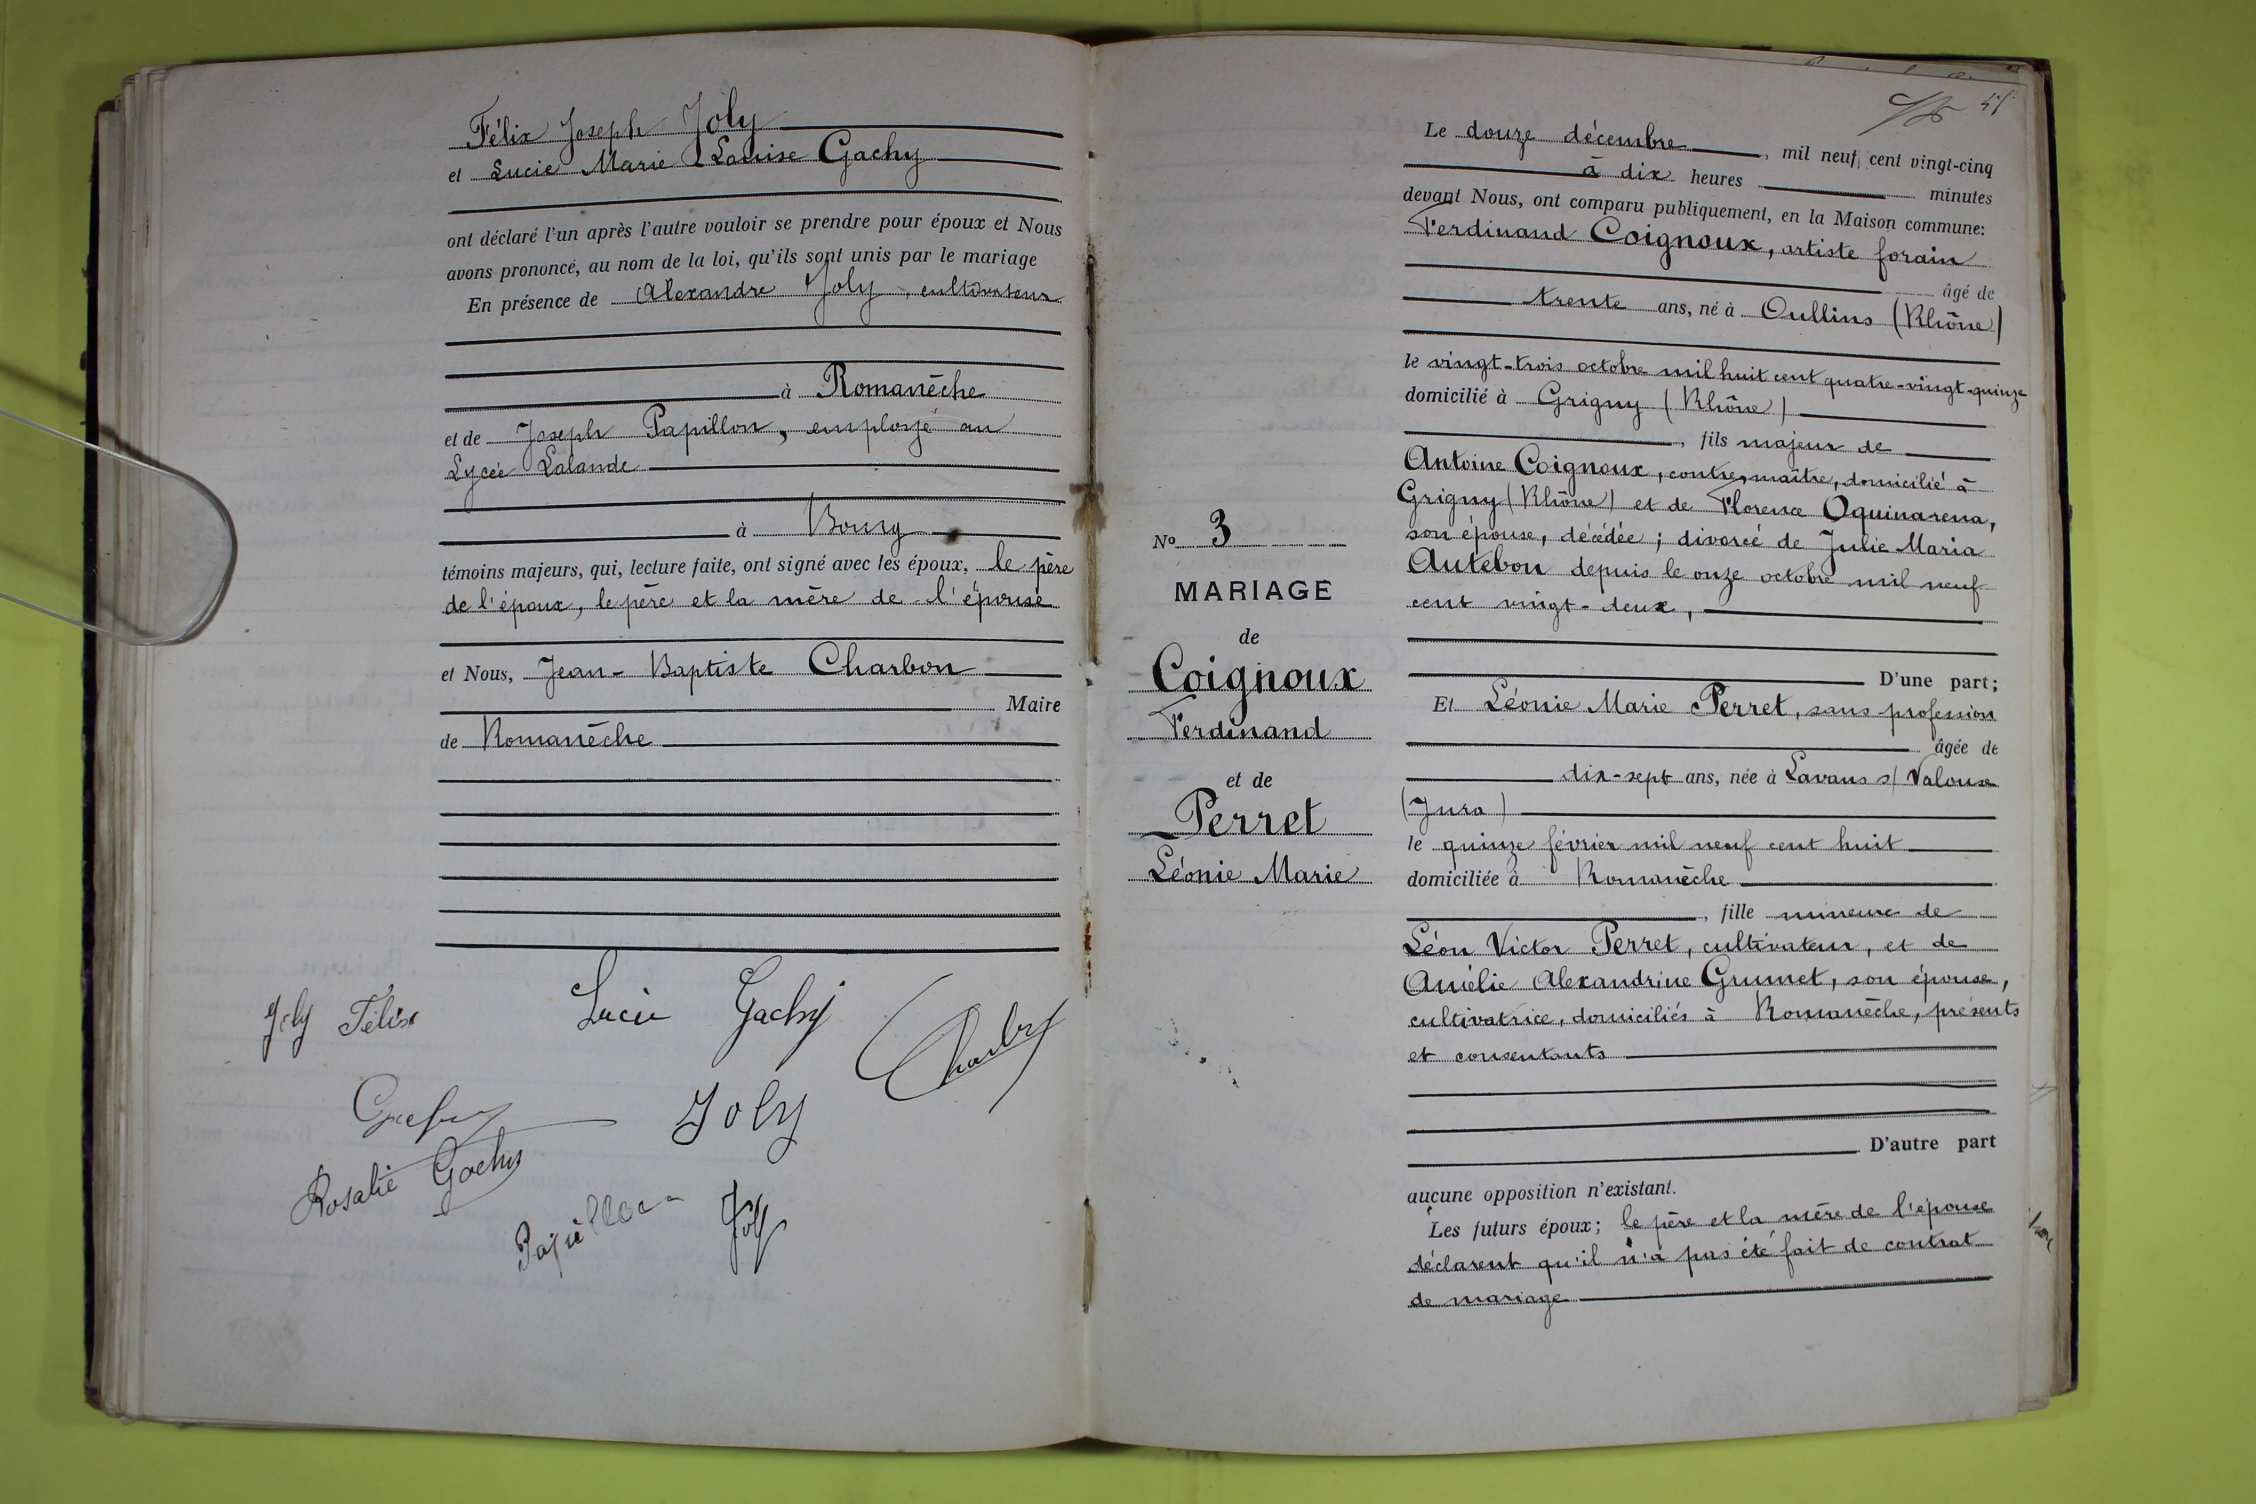 Félix Joseph Joly
et Lucie Marie Louise Gachy
ont déclaré l'un après l'autre vouloir se prendre pour époux et Nous
avons prononcé, au nom de la loi, qu'ils sont unis par le mariage
En présence de Alexandre Joly, cultivateur
à Romanèche
et de Joseph Papillon, employé au
Lycée Lalande
à Bourg
témoins majeurs, qui, lecture faite, ont signé avec les époux, le père
de l'époux, le père et la mère de l'épouse
et Nous, Jean-Baptiste Charbon
Maire
de Romanèche
Joly Félix
Lucie Gachy
Charbon
Gachy
Joly
Rosalie Gachy
Papillon
Joly
Nº 3
MARIAGE
de
Coignoux
Ferdinand
et de
Perret
Léonie Marie
Le douze décembre, mil neuf cent vingt-cinq
à dix heures minutes
devant Nous, ont comparu publiquement, en la Maison commune:
Ferdinand Coignoux, artiste forain
âgé de
trente ans, né à Oullins (Rhône)
le vingt-trois octobre mil huit cent quatre-vingt-quinze
domicilié à Grigny (Rhône)
, fils majeur de
Antoine Coignoux, contre-maître, domicilié à
Grigny (Rhône) et de Florence Oquinarena,
son épouse, décédée; divorcé de Julie Maria
Autebon depuis le onze octobre mil neuf
cent vingt-deux,
D'une part;
Et Léonie Marie Perret, sans profession
âgée de
dix-sept ans, née à Lavans s/ Valouse
(Jura)
le quinze février mil neuf cent huit
domiciliée à Romanèche
, fille mineure de
Léon Victor Perret, cultivateur, et de
Amélie Alexandrine Grumet, son épouse,
cultivatrice, domiciliés à Romanèche, présents
et consentants
D'autre part
aucune opposition n'existant.
Les futurs époux; le père et la mère de l'épouse
déclarent qu'il n'a pas été fait de contrat
de mariage